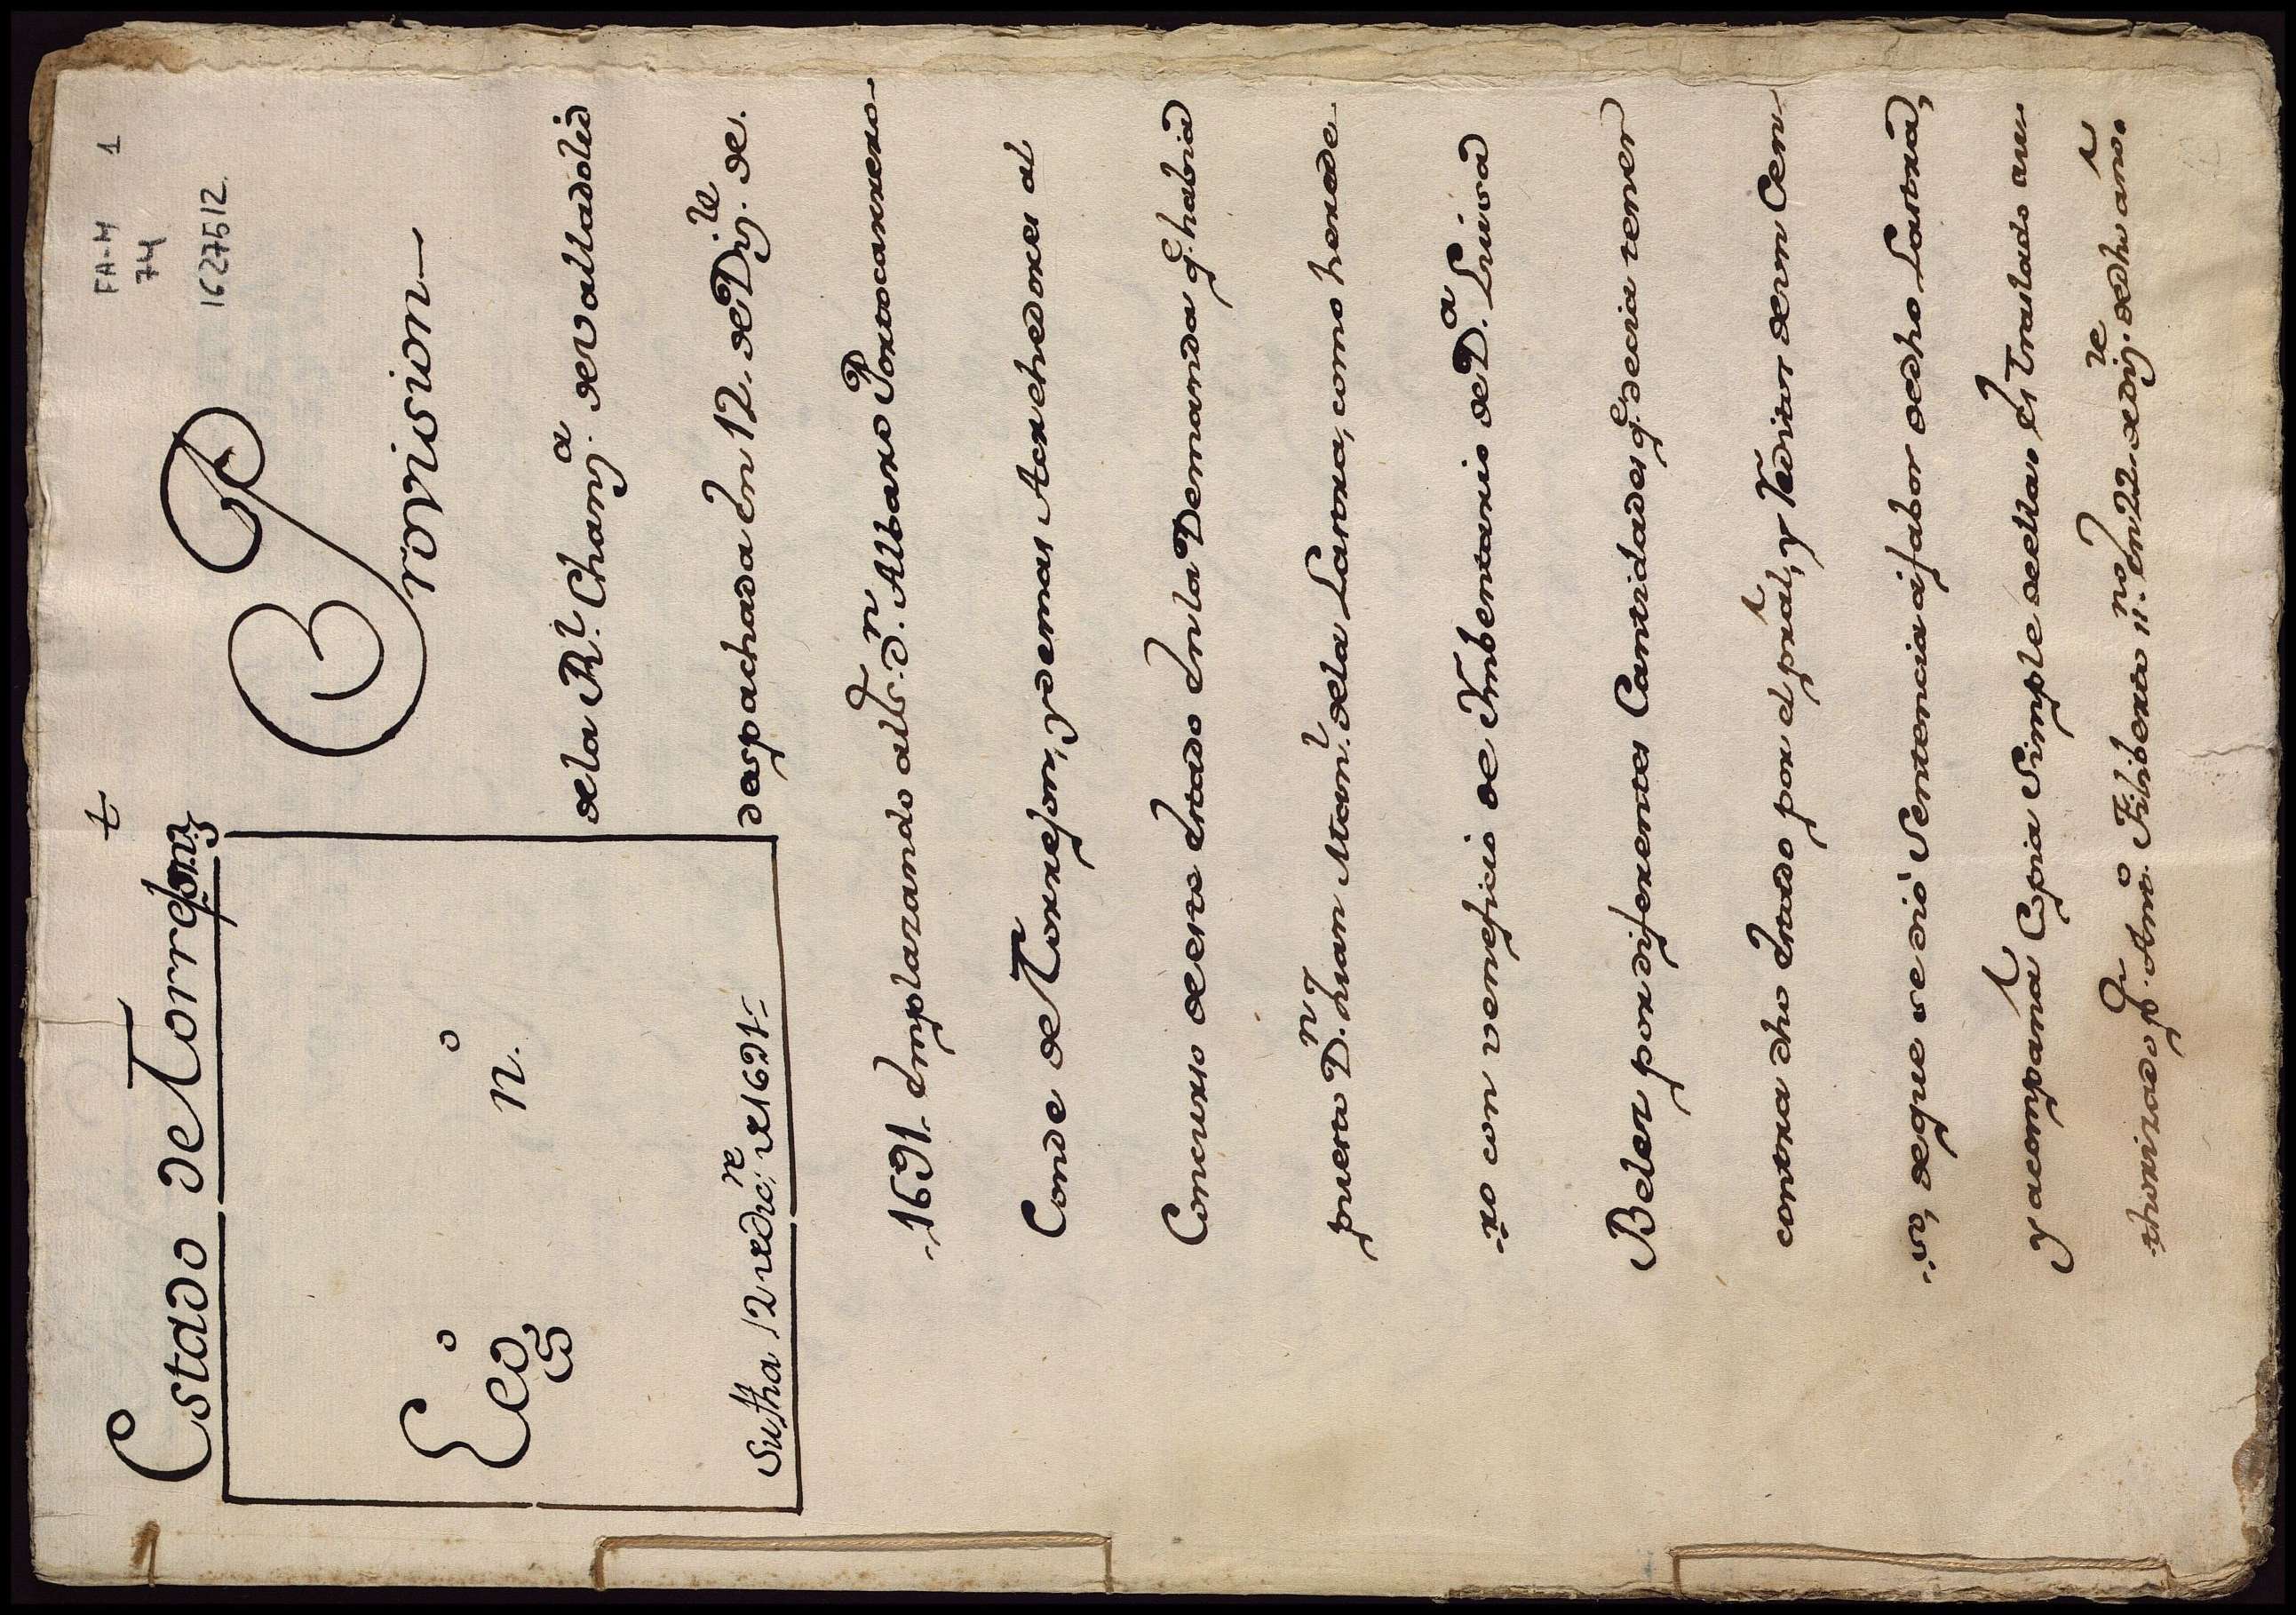 FA-M
74
1
1627512
t
Estado de Torrejonz
Leg.º n.º
Su fha 12 de Dic.re de 1691.
Provision
de la Rl. Chanz.a de valladolid
despachada En 12. de Diz.re de.
1691. Emplazando a D.n Albaro Portocarrero
Conde de Torrejon, y demas Acrehedores al
Concurso de este Estado En la Demanda q.e habia
puesto D.n Juan Man.l de la Lastra, como herede
ro con veneficio de Imbentario de D.a Luisa
Belez por diferentes Cantidades q.e decia tener
contra dho Estado por el pral, y reditos de un Cen
so, de que se dió Sentencia á fabor de dho Lastra,
y acompaña Copia Simple de ellas Es traslado au
thorizado p.r Ant.o Filiberto ss.no En 22. de diz.re de dho año.